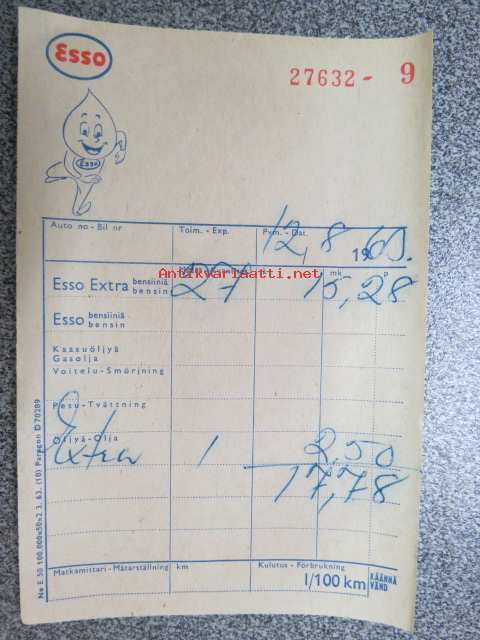 Esso
27632 - 9
Esso
Auto no - Bil nr Toim. - Exp. Pvm. - Dat.
12,8 1965.
Antikvariaatti.net
mk p
Esso Extra bensiiniä bensin 27 15,28
Esso bensiiniä bensin
Kaasuöljyä
Gasolja
Voitelu - Smörjning
Pesu - Tvättning
Öljyä - Olja
Extra 1 2,50
17,78
Matkamittari - Mätarställning km Kulutus - Förbrukning
l/100 km KÄÄNNÄ VÄND
No E 50 100.000x50x2 3. 63. (10) Paragon D 70289